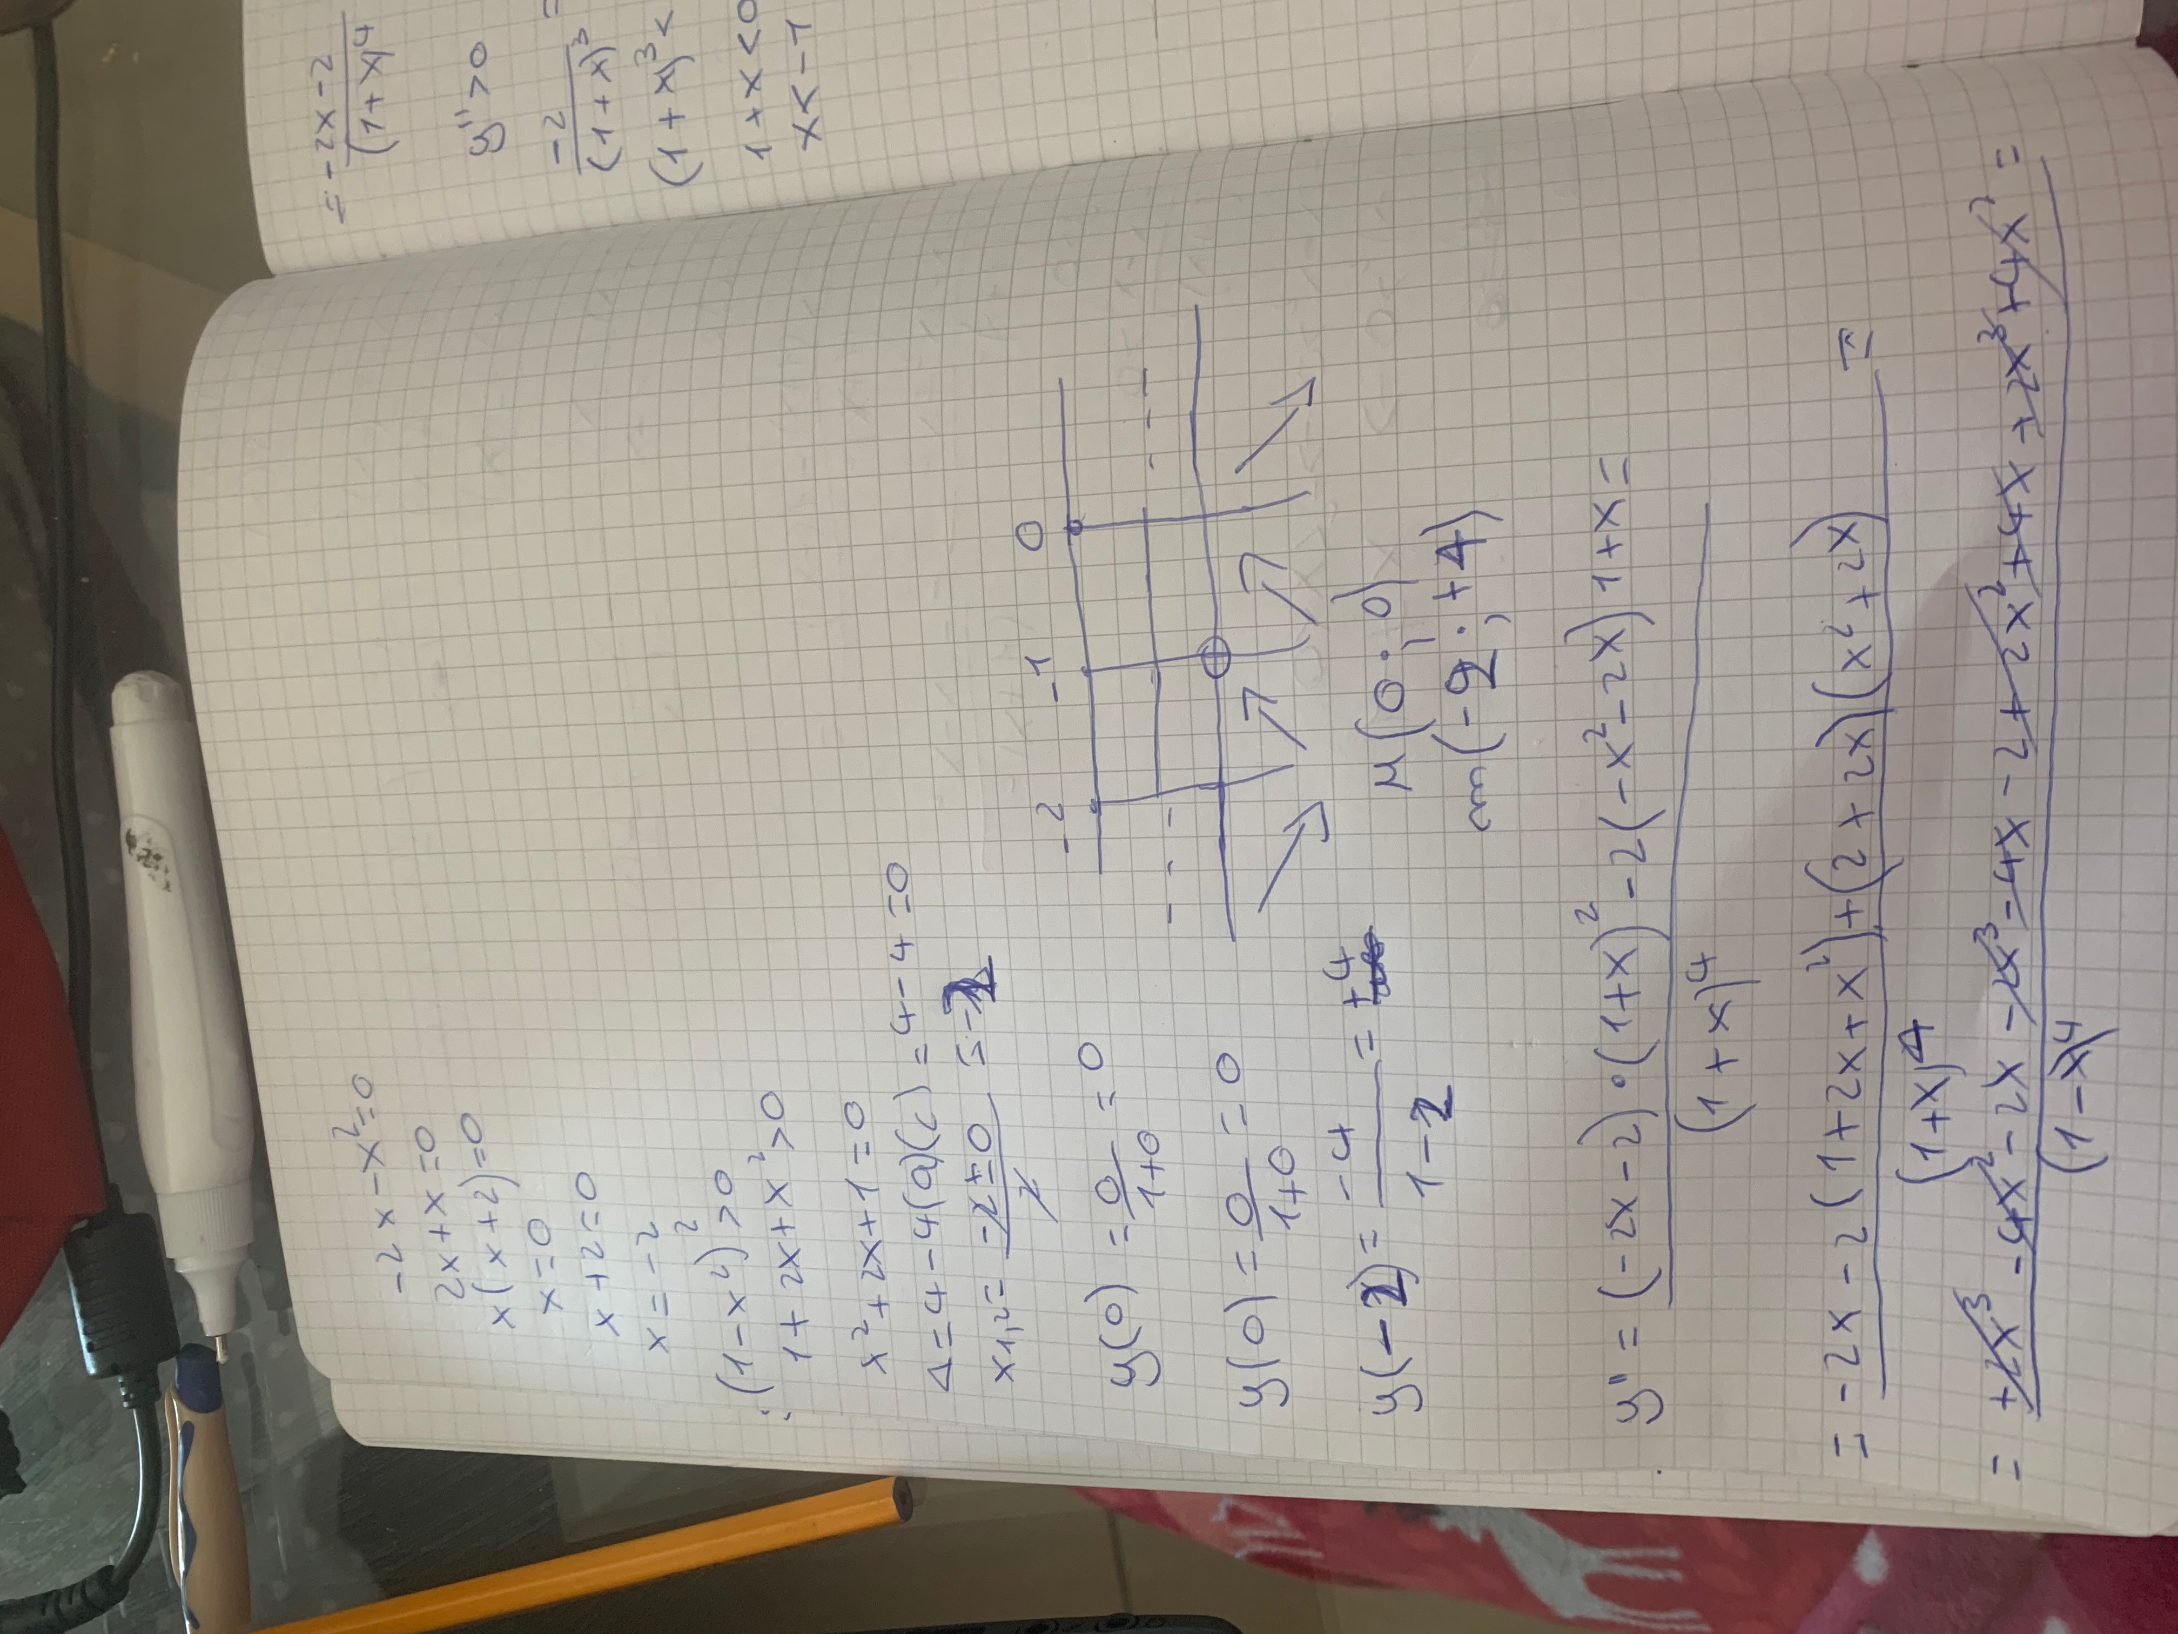 -2x-x²=0
2x+x=0
x(x+2)=0
x=0
x+2=0
x=-2
(1-x²)²>0
1+2x+x²>0
x²+2x+1=0
Δ=4-4(a)(c)=4-4=0
x1,2=-2±0/2=-1
y(0)=0/1+0=0
y(0)=0/1+0=0
y(-2)=-4/1-2=+4
-2 -1 0
M(0;0)
m(-2;+4)
y''=(-2x-2)·(1+x)²-2(-x²-2x)1+x=
(1+x)⁴
=-2x-2(1+2x+x²)+(2+2x)(x²+2x)=
(1+x)⁴
=+2x³-4x²-2x-2x³-4x-2+2x²+4x+2x³+4x²=
(1-x)⁴
=-2x-2
(1+x)⁴
y''>0
-2/(1+x)³
(1+x)³<
1+x<0
x<-1